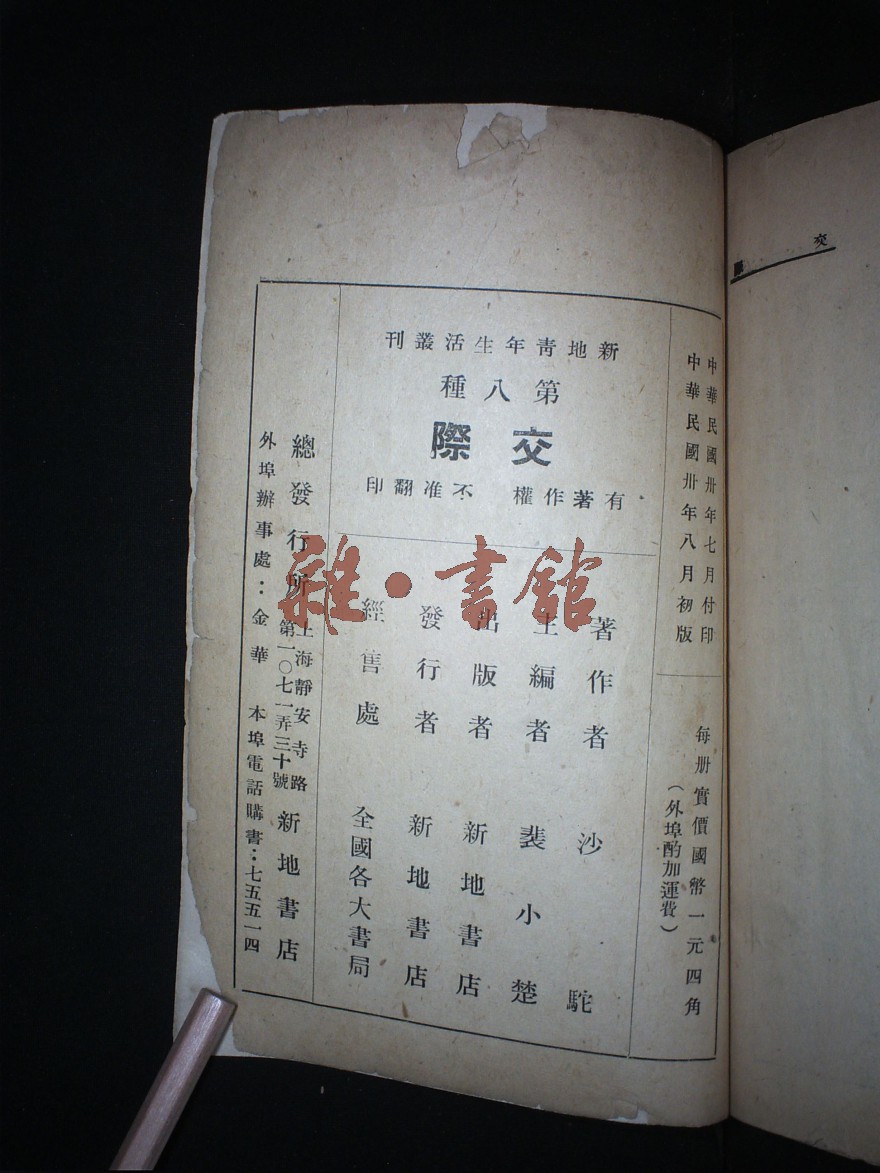 中華民國卅年七月付印
中華民國卅年八月初版
每册實價國幣一元四角
（外埠酌加運費）
新地靑年生活叢刊
第八種
交際
有著作權 不准翻印
著作者 沙駝
主編者 裴小楚
出版者 新地書店
發行者 新地書店
經售處 全國各大書局
總發行所 上海靜安寺路
第一〇七一弄三十號 新地書店
外埠辦事處：金華 本埠電話購書：七五五一四
雜·書館
交際